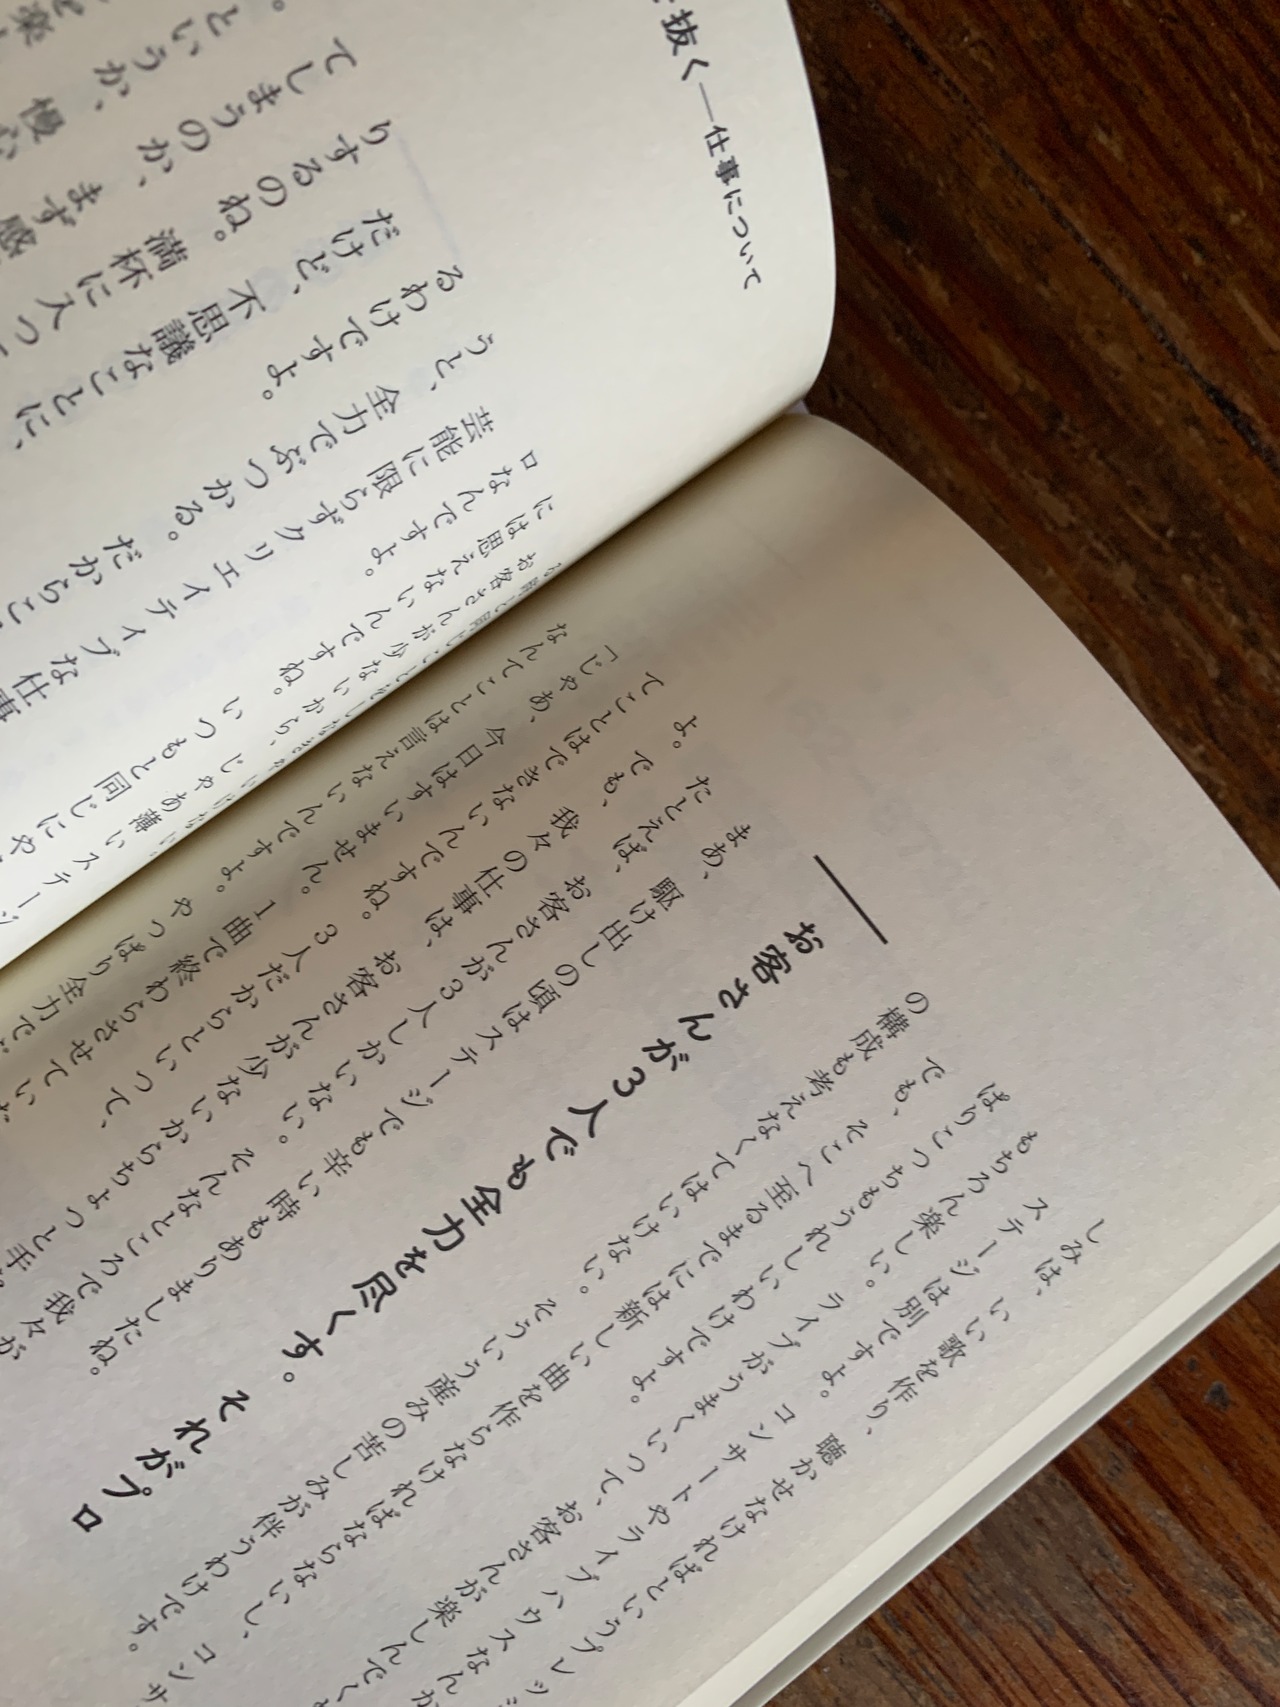 しみは、いい歌を作り、聴かせなければというプレッシ
ステージは別ですよ。コンサートやライブハウスなんか
もちろん楽しい。ライブがうまくいって、お客さんが楽しんでく
ぱりこっちもうれしいわけですよ。
でも、そこへ至るまでには新しい曲を作らなければならないし、コンサ
の構成も考えなくてはいけない。そういう産みの苦しみが伴うわけです。
お客さんが3人でも全力を尽くす。それがプロ
まあ、駆け出しの頃はステージでも辛い時もありましたね。
たとえば、お客さんが3人しかいない。そんなところで我々が
よ。
でも、我々の仕事は、お客さんが少ないからちょっと手
てことはできないんですね。3人だからといって、
「じゃあ、今日はすいません。1曲で終わらせていた
なんてことは言えないんですよ。やっぱり全力で
抜く──仕事について
お客さんが少ないから、じゃあ薄いステージ
には思えないんですね。いつもと同じにや
ロなんですよ。
芸能に限らずクリエイティブな仕事
うと、全力でぶつかる。だからこ
るわけですよ。
だけど、不思議なことに、
りするのね。満杯に入っ
てしまうのか、まず感
というか、慢心
楽